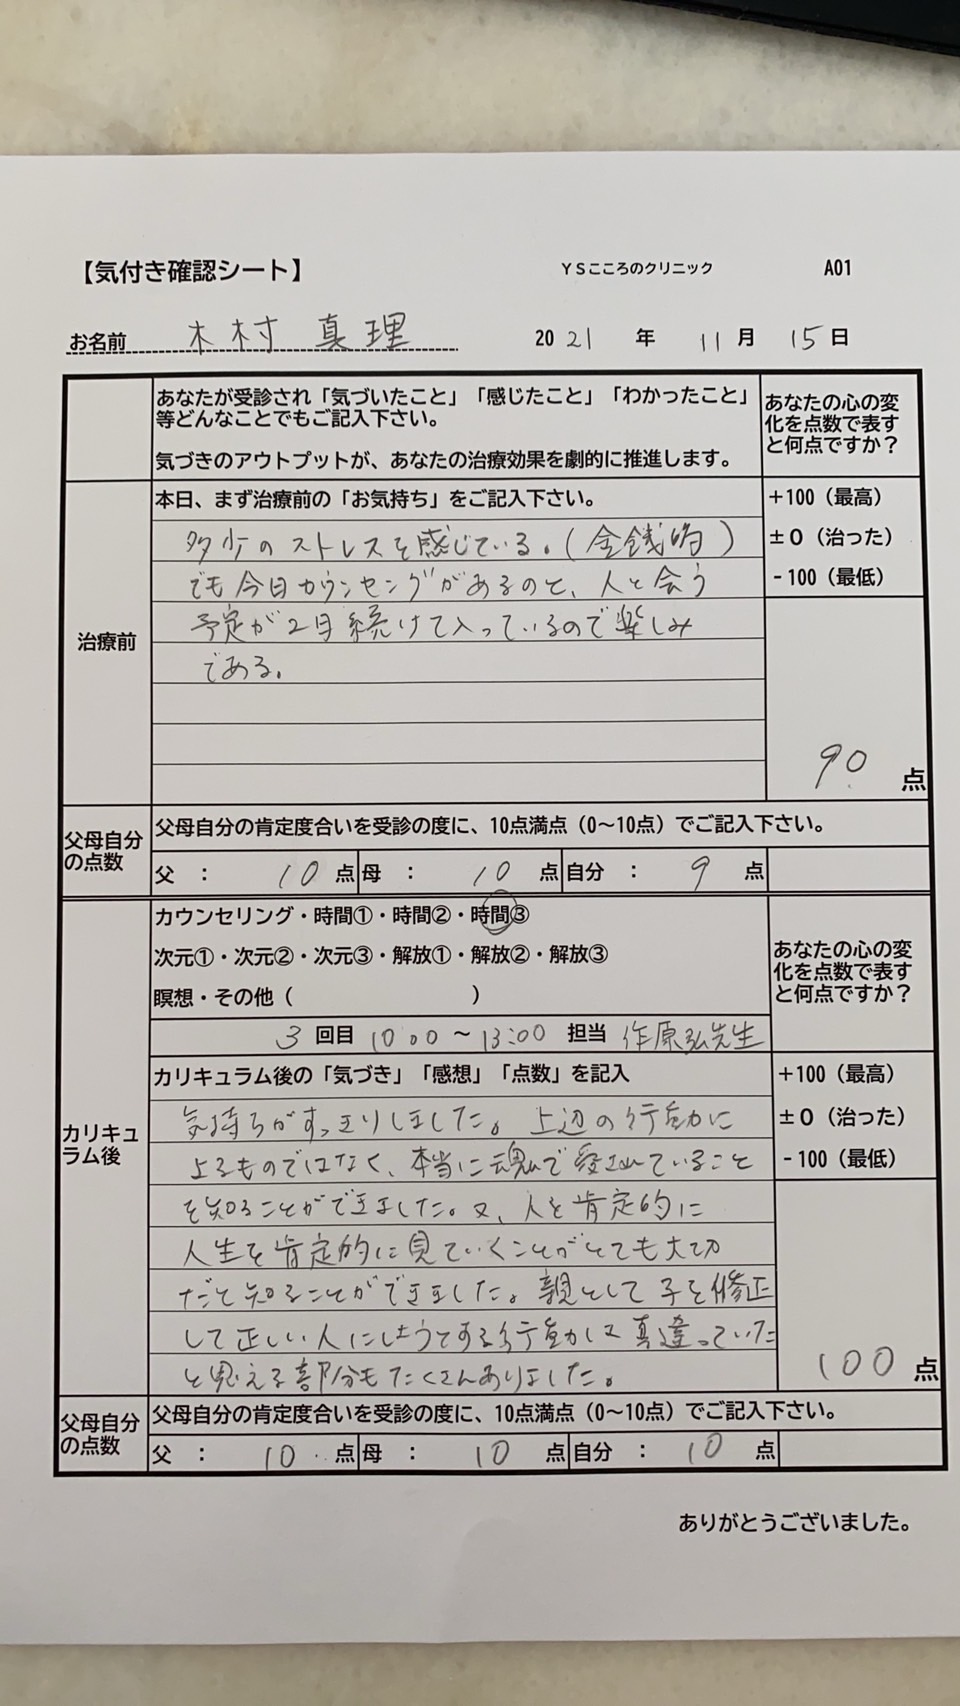 【気付き確認シート】 ＹＳこころのクリニック A01
お名前 木村 真理 2021 年 11 月 15 日
あなたが受診され「気づいたこと」「感じたこと」「わかったこと」
等どんなことでもご記入下さい。
気づきのアウトプットが、あなたの治療効果を劇的に推進します。
あなたの心の変
化を点数で表す
と何点ですか？
治療前
本日、まず治療前の「お気持ち」をご記入下さい。
多少のストレスを感じている。（金銭的）
でも今日カウンセングがあるのと、人と会う
予定が2日続けて入っているので楽しみ
である。
＋100（最高）
±０（治った）
－100（最低）
90 点
父母自分
の点数
父母自分の肯定度合いを受診の度に、10点満点（0～10点）でご記入下さい。
父 ： 10 点 母 ： 10 点 自分 ： 9 点
カリキュ
ラム後
カウンセリング・時間①・時間②・時間③
次元①・次元②・次元③・解放①・解放②・解放③
瞑想・その他（ ）
3 回目 10:00 ～ 13:00 担当 作原弘先生
あなたの心の変
化を点数で表す
と何点ですか？
カリキュラム後の「気づき」「感想」「点数」を記入
気持ちがすっきりしました。上辺の行動に
よるものではなく、本当に魂で愛されていること
を知ることができました。又、人を肯定的に
人生を肯定的に見ていくことがとても大切
だと知ることができました。親として子を修正
して正しい人にしようとする行動は間違っていた
と思える部分もたくさんありました。
＋100（最高）
±０（治った）
－100（最低）
100 点
父母自分
の点数
父母自分の肯定度合いを受診の度に、10点満点（0～10点）でご記入下さい。
父 ： 10 点 母 ： 10 点 自分 ： 10 点
ありがとうございました。